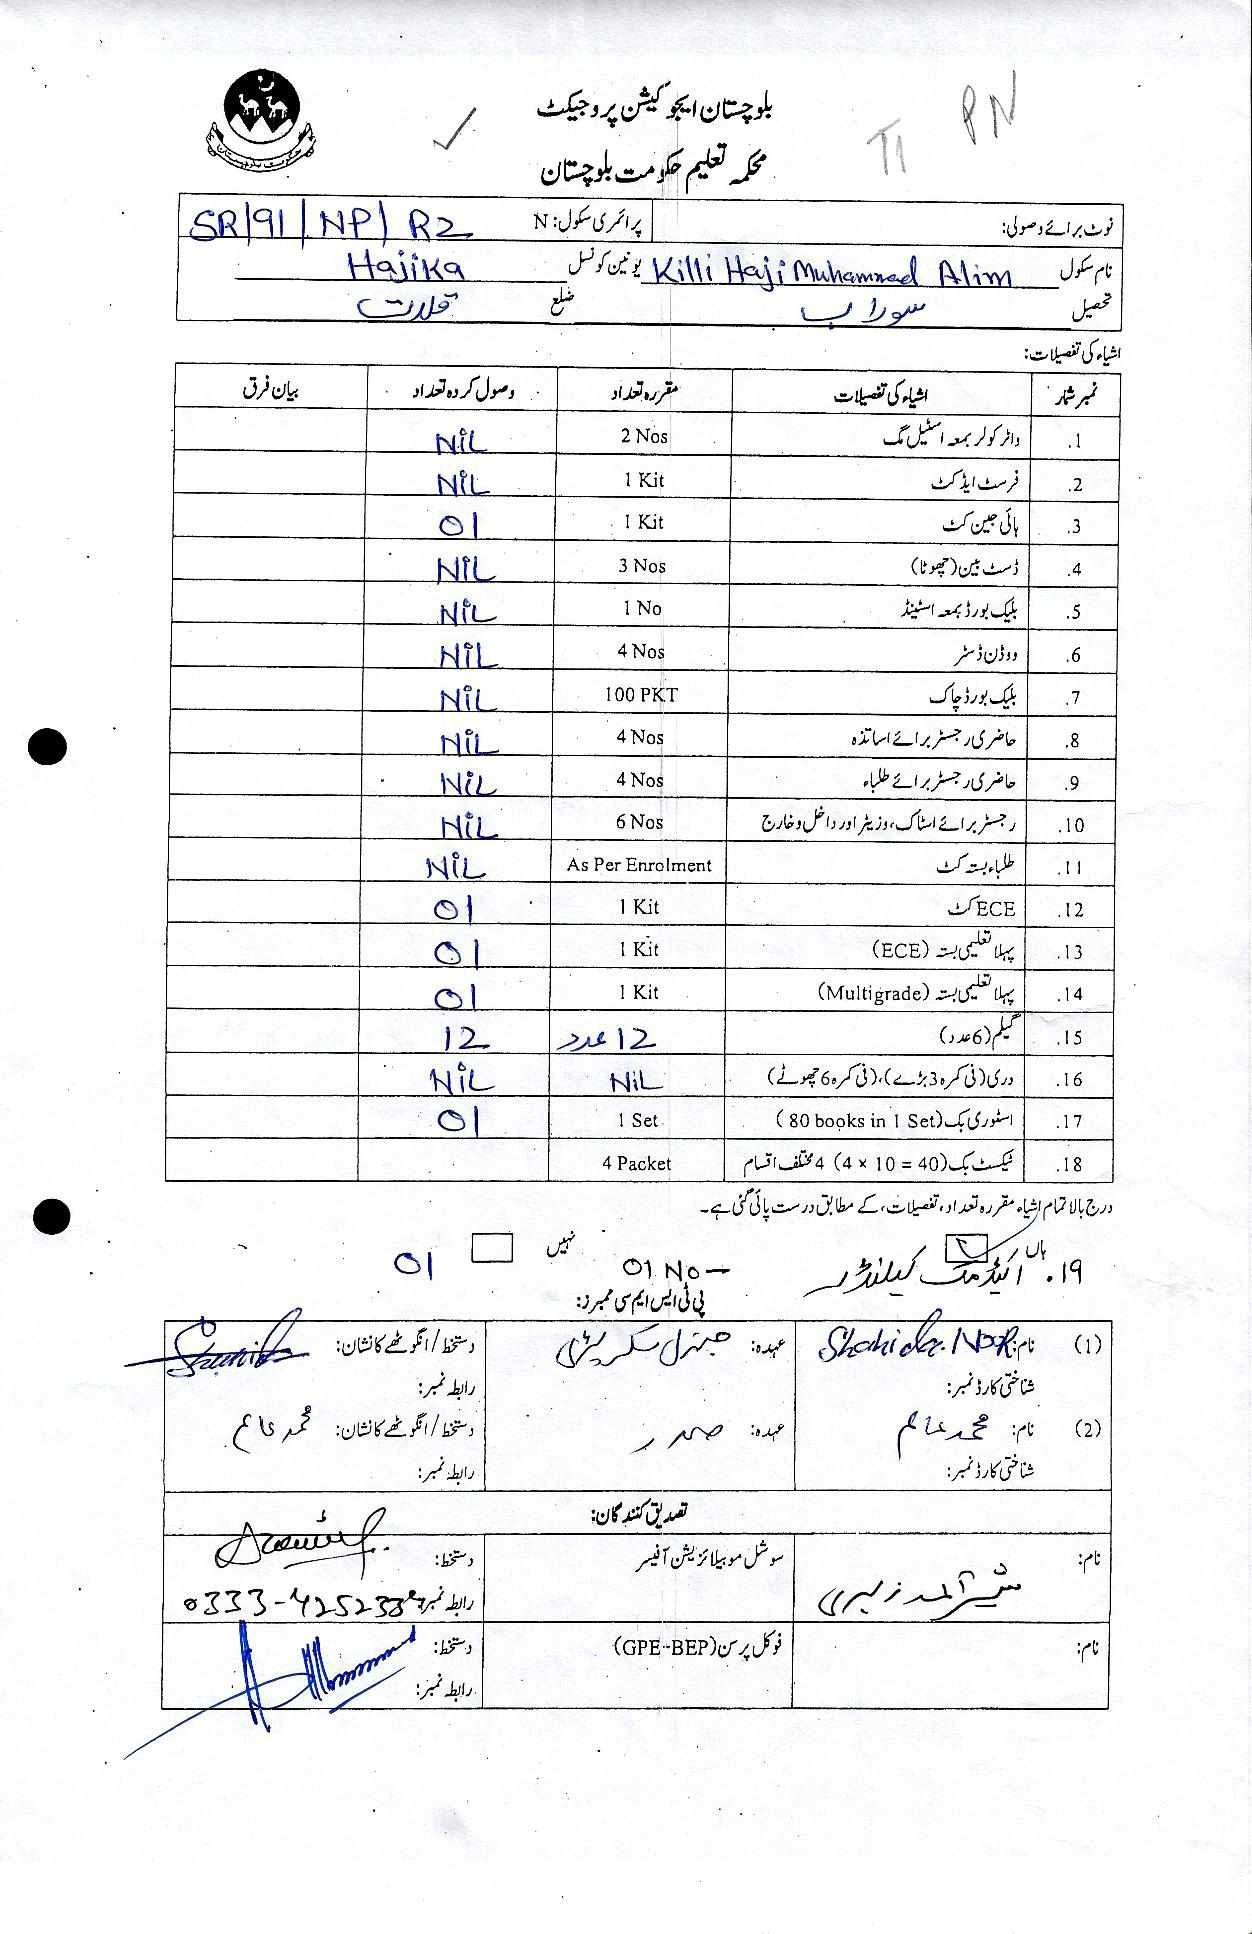 بلوچستان ایجوکیشن پروجیکٹ
محکمہ تعلیم حکومت بلوچستان
T1 PN
نوٹ برائے وصولی: پرائمری سکول: N SR/91/NP/R2
نام سکول Killi Haji Muhammad Alim یونین کونسل Hajika
تحصیل سوراب ضلع قلات
اشیاء کی تفصیلات:
نمبر شمار اشیاء کی تفصیلات مقررہ تعداد وصول کردہ تعداد بیان فرق
1. واٹر کولر بمعہ اسٹیل مگ 2 Nos NiL
2. فرسٹ ایڈ کٹ 1 Kit NiL
3. ہائی جین کٹ 1 Kit 01
4. ڈسٹ بین (چھوٹا) 3 Nos NiL
5. بلیک بورڈ بمعہ اسٹینڈ 1 No NiL
6. ووڈن ڈسٹر 4 Nos NiL
7. بلیک بورڈ چاک 100 PKT NiL
8. حاضری رجسٹر برائے اساتذہ 4 Nos NiL
9. حاضری رجسٹر برائے طلباء 4 Nos NiL
10. رجسٹر برائے اسٹاک، وزیٹر اور داخل و خارج 6 Nos NiL
11. طلباء بستہ کٹ As Per Enrolment NiL
12. ECE کٹ 1 Kit 01
13. پہلا تعلیمی بستہ (ECE) 1 Kit 01
14. پہلا تعلیمی بستہ (Multigrade) 1 Kit 01
15. گیلم (6 عدد) 12 عدد 12
16. دری (فی کمرہ 3 بڑے)، (فی کمرہ 6 چھوٹے) NiL NiL
17. اسٹوری بک (80 books in 1 Set) 1 Set 01
18. ٹیکسٹ بک (4 × 10 = 40) 4 مختلف اقسام 4 Packet
درج بالا تمام اشیاء مقررہ تعداد، تفصیلات، کے مطابق درست پائی گئی ہے۔
ہاں نہیں
19. اکیڈمک کیلنڈر 01 No 01
پی ٹی ایس ایم سی ممبرز:
(1) نام: Shahida Noor عہدہ: جنرل سکریٹری دستخط/انگوٹھے کا نشان:
شناختی کارڈ نمبر: رابطہ نمبر:
(2) نام: محمد عالم عہدہ: صدر دستخط/انگوٹھے کا نشان: محمد عالم
شناختی کارڈ نمبر: رابطہ نمبر:
تصدیق کنندگان:
نام: سوشل موبیلائزیشن آفیسر دستخط:
رابطہ نمبر:
نام: فوکل پرسن (GPE-BEP) دستخط:
رابطہ نمبر: